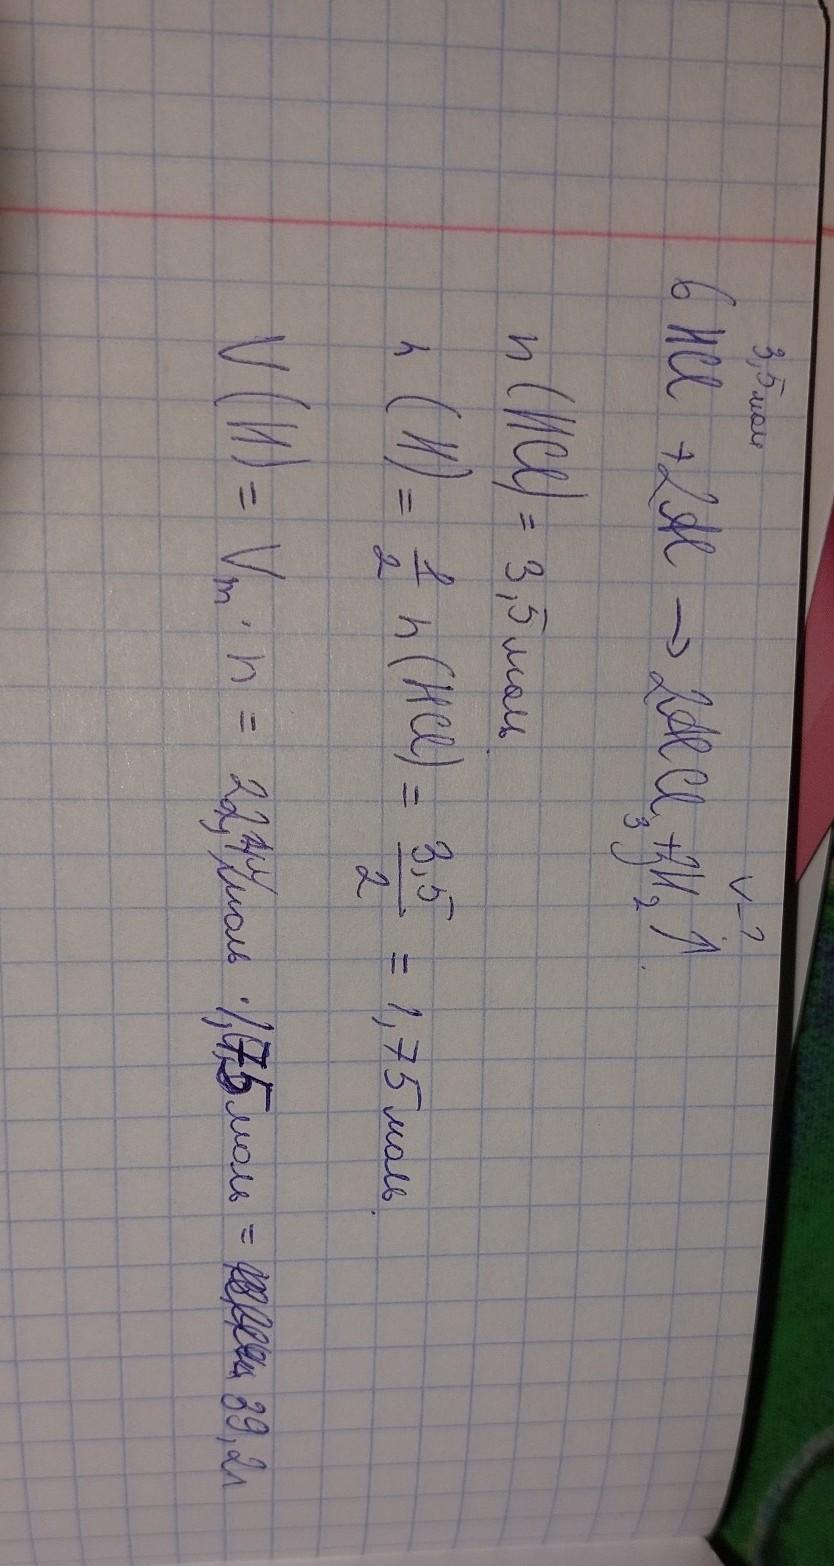 3,5 моль V-?
6 HCl + 2Al → 2AlCl₃ + 3H₂ ↑.
n (HCl) = 3,5 моль.
n (H) = 1/2 n (HCl) = 3,5/2 = 1,75 моль.
V (H) = Vm · n = 22,4 л/моль · 1,75 моль = 39,2 л